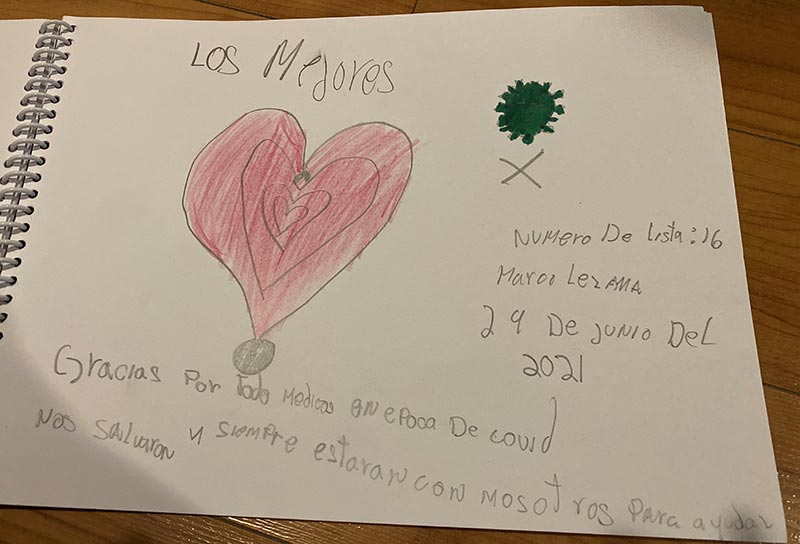 Los Mejores
X
NUMERO De Lista: 16
Marco LezAMA
29 De Junio Del
2021
Gracias Por todo Medicos en epoca De covid
Nos salvaron y siempre estaran con nosotros Para ayudar